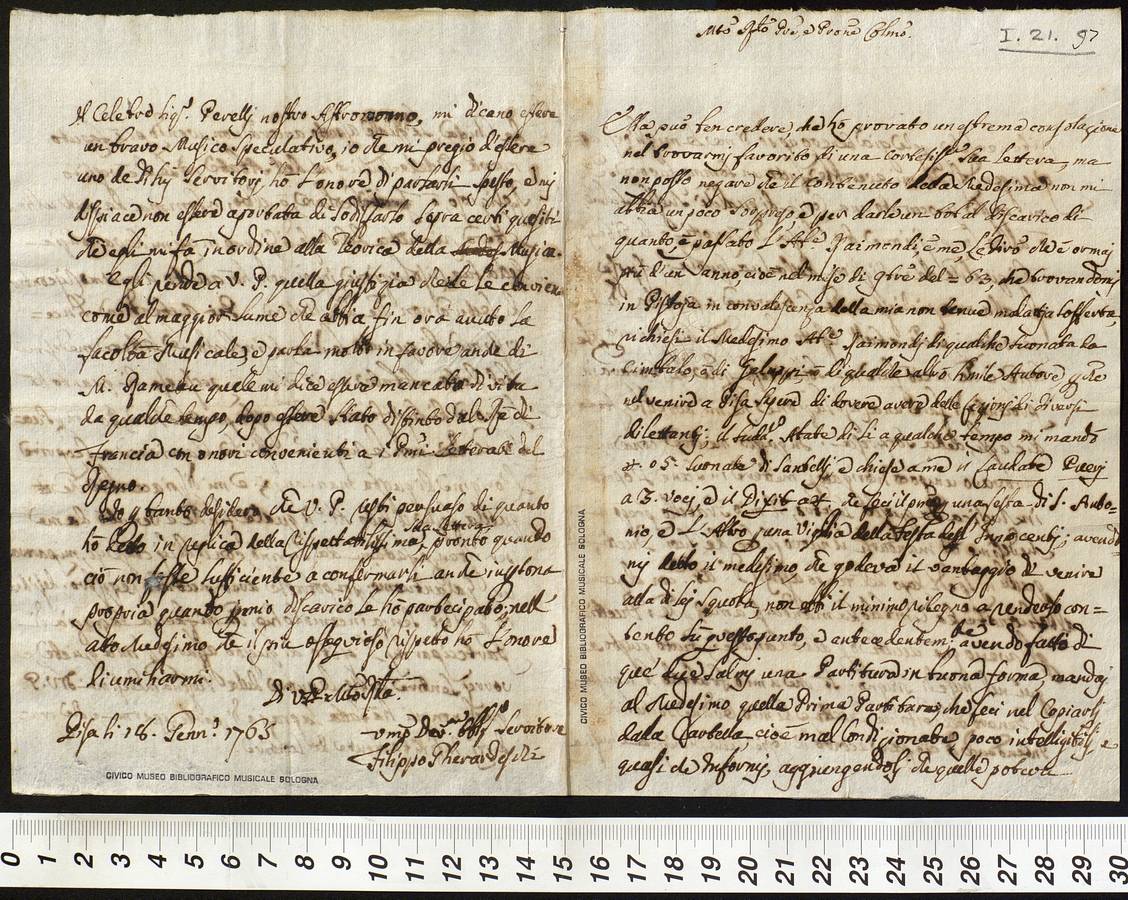 Il Celebre Sigr. Perellj nostro Astronomo, mi dicano essere
un bravo Musico Speculativo, io che mi pregio d'essere
uno de Servitorj hò l'onore di portarli spesso, e mi
dispiace non essere a portata di sodisfarlo sopra certi quesiti
che egli mi fà in ordine alla Teorica della Musica.
Egli rende a V. P. quella giustizia che se le convien
come al maggior lume che abbia fin ora avuto la
facoltà Musicale, e parla molto in favore ande di
M. Rameau quale mi dice essere mancato di vita
da qualche tempo, dopo essere stato distinto dal Re di
Francia con onori convenienti a i Pmi Letterati del
Regno.
Io tanto desidero che V. P. resti persuaso di quanto
hò detto in replica della Rispettabilissima Sua Lettera, pronto quando
ciò non fosse sufficiente a confermarli anche in persona
propria quando in mio discarico le hò partecipato; nell'
atto medesimo che il più ossequioso rispetto hò l'onore
di umiliarmi.
Di V. P. Molto Illa.
Pisa li 18. Genn.o 1765
Umo Devmo Obblmo Servitore
Filippo Gherardeschi
CIVICO MUSEO BIBLIOGRAFICO MUSICALE BOLOGNA
CIVICO MUSEO BIBLIOGRAFICO MUSICALE BOLOGNA
Mto Illo Pre, e Prone Colmo.
I. 21. 97
Ella può ben credere, che hò provato un estrema consolazione
nel trovarmj favorito di una cortesissa Sua Lettera, ma
non posso negare che il contenuto della Medesima non mi
abbia un poco sorpreso e per darle un total discarico di
quanto è passato l'Ate. Raimondi, e me, Le dirò che è ormai
più d'un anno, cioè nel mese di 9bre del = 63, che trovandomi
in Pistoja in convalescenza della mia non tenue malattia sofferta,
richiesi il Medesimo Ate. Raimondj di qualche Suonata da
Cimbalo, o di Galuppi o di qualche altro simile Autore pche
nel venire a Pisa sicuro di dovere avere delle lezionj di diversi
dilettantj; il Sudd. Abate di lì a qualche tempo mi mandò
05. Suonate di Santellj e chiese a me il Laudate Puerj
a 3. Vocj e il Dixit a 4. che feci il pmo una festa di S. Anto=
nio, e l'Altro p una Vigilia della festa degl'Innocentj; avendo
mj detto il medesimo, che godeva il vantaggio di venire
alla di lej Squola, non ebbi il minimo ritegno a renderlo con=
tento su questo punto, e antecedentemte avendo fatto di
que' due Salmj una Partitura in buona forma, mandaj
al Medesimo quella Prima Partitura, che feci nel Copiarli
dalla Cartella, cioè mal Condizionate poco intelligibili, e
quasi che Informj, aggiungendoli che quelle poteva